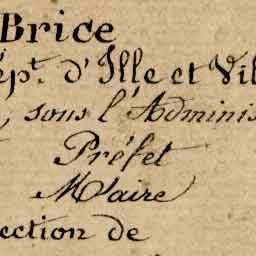 Brice
épt. d'Ille et Vil
, sous l'Adminis
Préfet
Maire
ection de